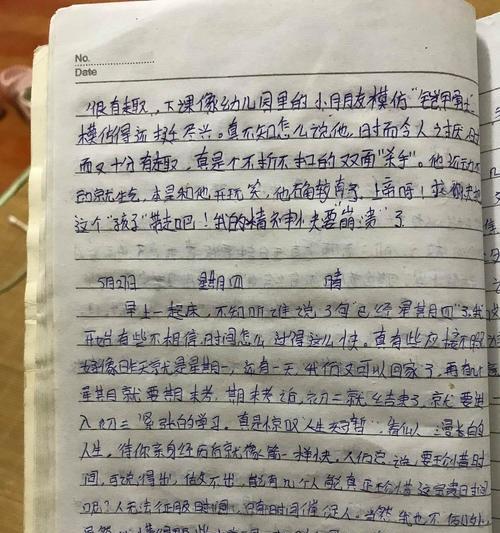 No.
Date
很有趣,下课像幼儿园里的小朋友模仿"铠甲勇士"
模仿得还挺尽兴。真不知怎么说他,时而令人讨厌,时
而又十分有趣,真是个不折不扣的双面"杀手"。他还动不
动就生气,本是和他开玩笑,他 上帝呀!
这个"孩子"带走吧!我的精神快要"崩溃"了
5月2日 星期四 晴
早上一起床,不知听谁说了句"已经星期四"了,我
开始有些不相信,时间怎么过得这么快。真有些应接不暇
好像昨天就是星期一,还有一天,我们又可以回家了,再有
星期日就要期末考,期末考近,初二就结束了,就要进
入初三紧张的学习。真是惊叹"人生 漫长的
人生,待你亲自经历后就像 一样快,人们总说,要珍惜时
间,可说得出,做不出,能有几个人能真正珍惜这宝贵时间
呢?人无法征服时间,只有时间催促人。当然我也不例外,